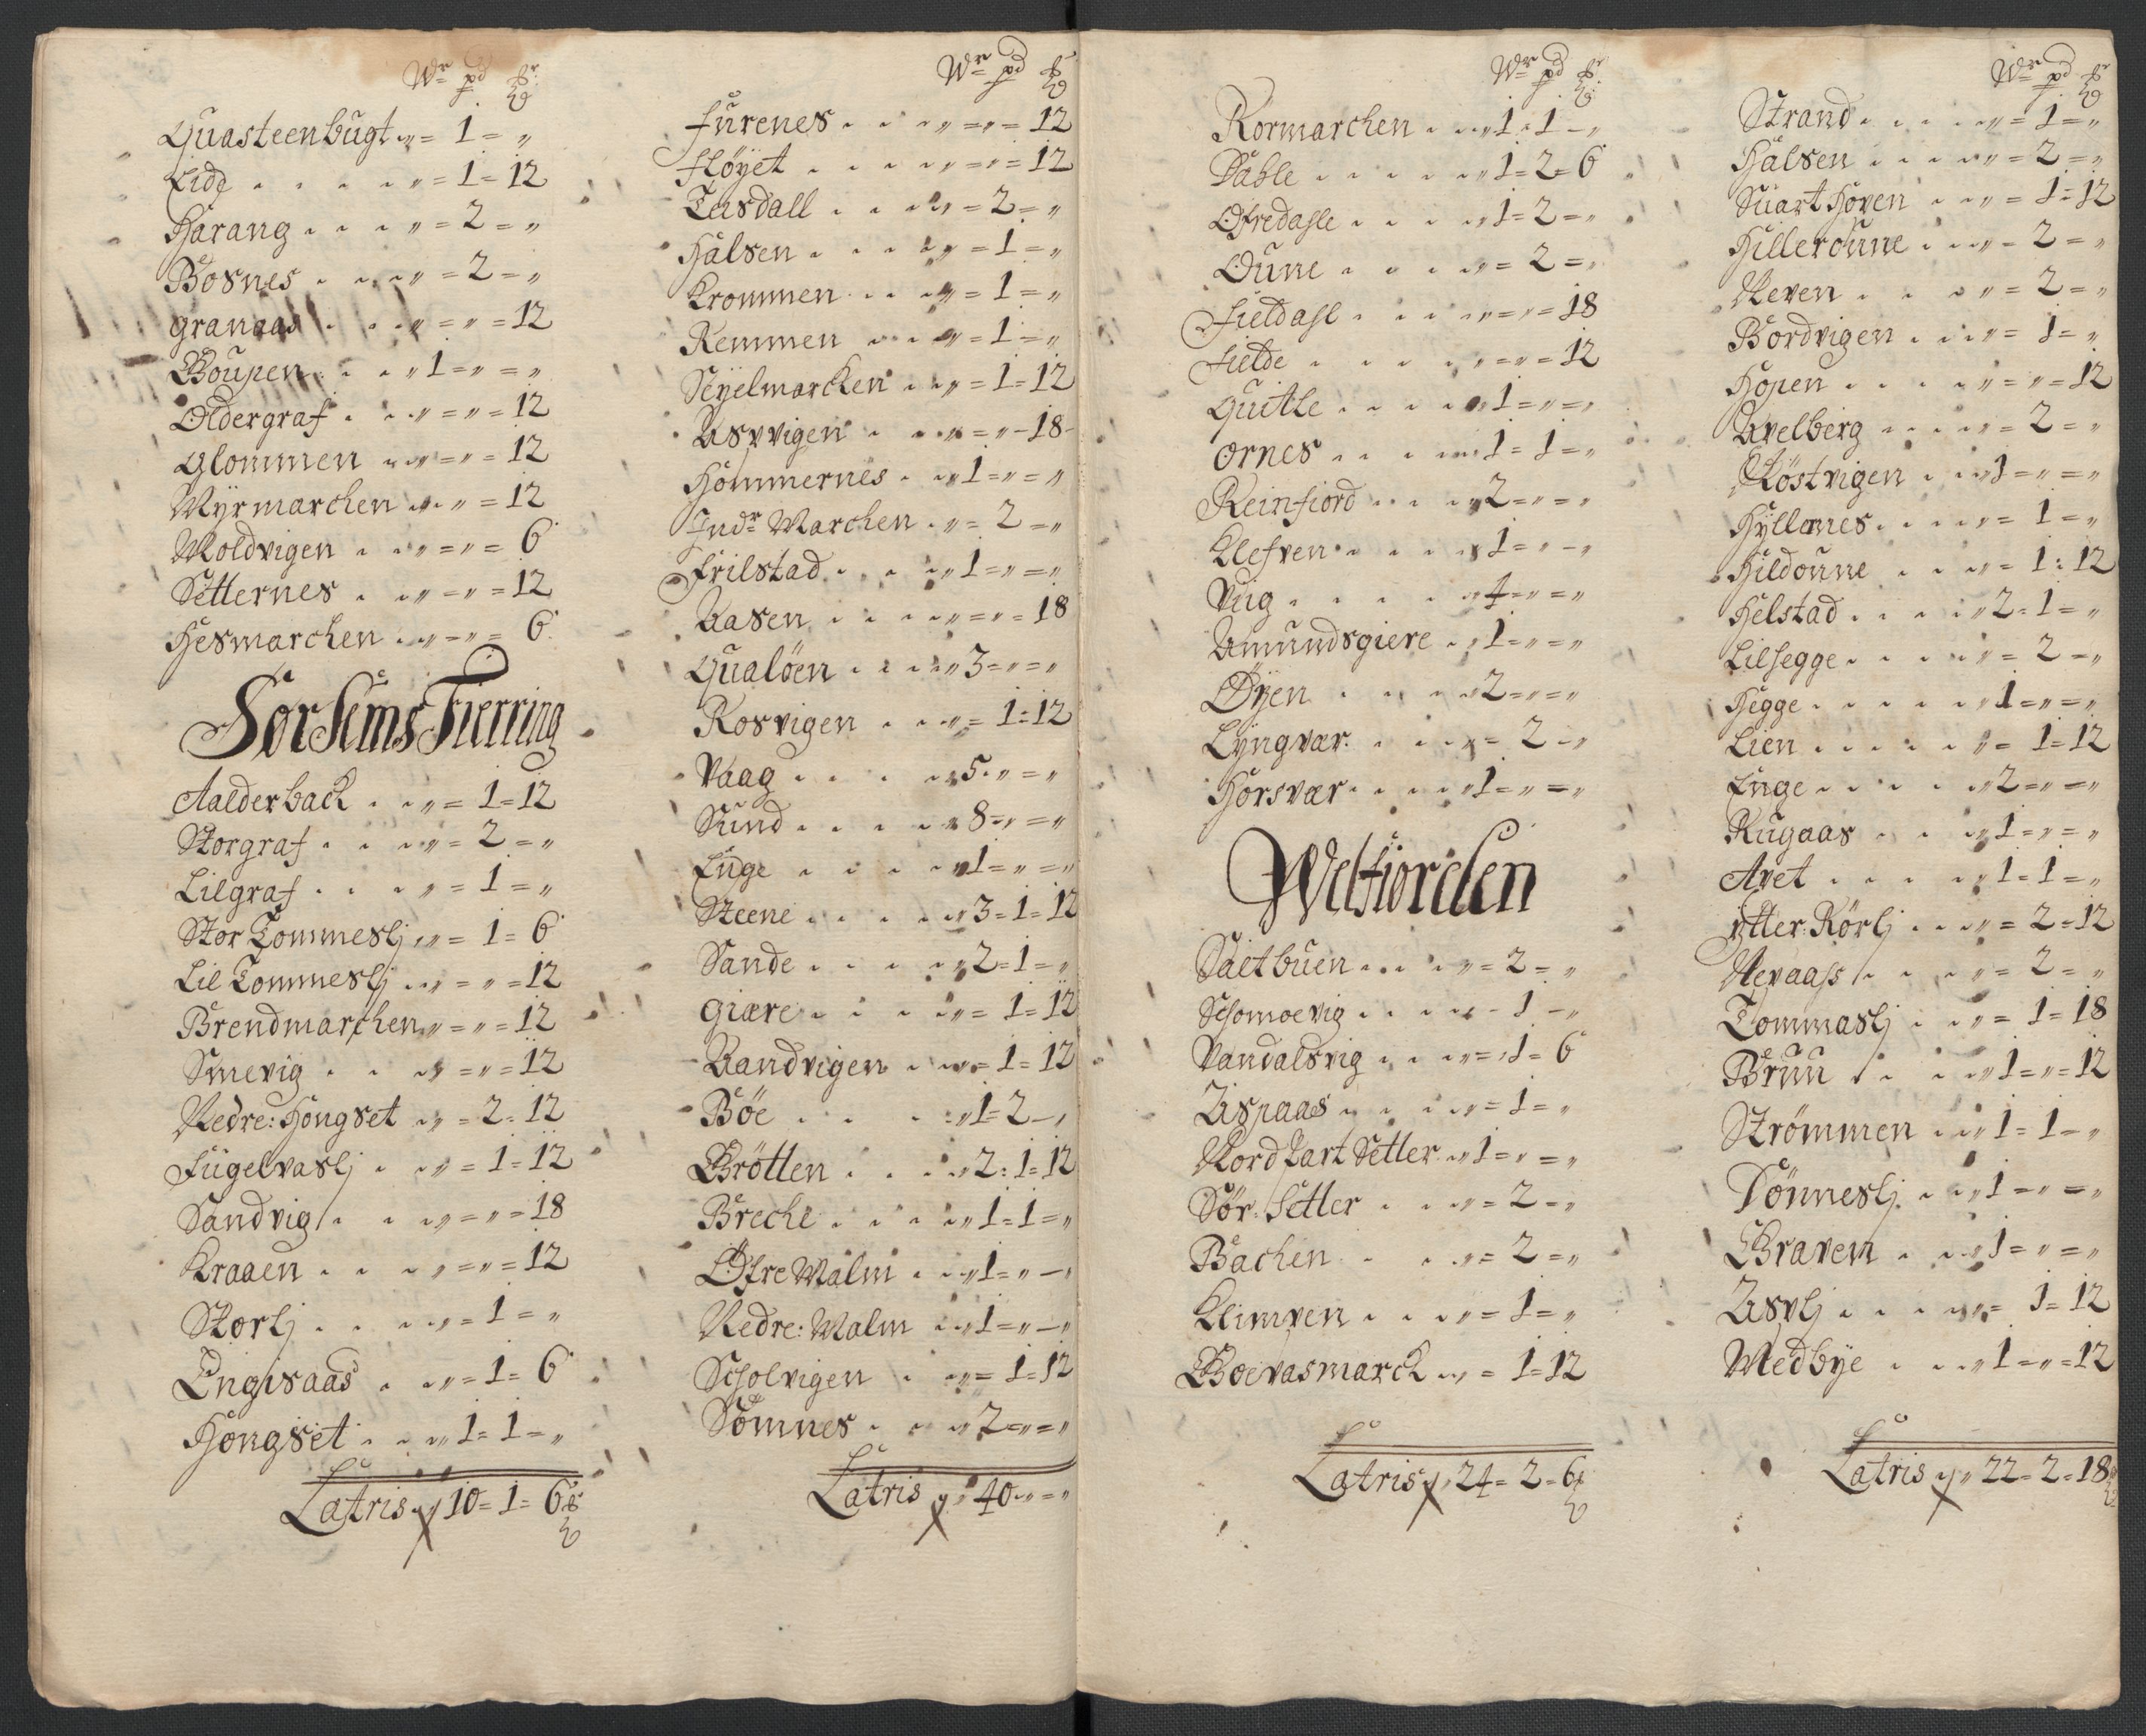 Wr pd ℔r
Quasteenbugt „ = 1 = „
Lide . . . . „ = 1 = 12
Harang . . . „ = 2 = „
Bosnes . . . „ = 2 = „
granaas . . „ = „ = 12
Boupen . . . „ 1 = „ = „
Oldergraf . . „ = „ = 12
Glommen . . „ = „ = 12
Myrmarchen . „ = „ = 12
Moldvigen . . „ = „ = 6
Setternes . . „ = „ = 12
Hesmarchen . „ = „ = 6
Sør Sems Fierring
Aalderback . . „ = 1 = 12
Storgraf . . . „ = 2 = „
Lilgraf . . . „ = 1 = „
Stor Tommeslj „ = 1 = 6
Lil Tommeslj . „ = „ = 12
Brendmarchen „ = „ = 12
Smevig . . . „ = „ = 12
Nedre: Hongset „ = 2 = 12
Fugelvaslj . . „ = 1 = 12
Sandvig . . . „ = „ = 18
Kraaen . . . „ = „ = 12
Storlj . . . . „ = 1 = „
Engisaas . . „ = 1 = 6
Hongset . . . „ 1 = 1 = „
Latris „ 10 = 1 = 6 ℔
Wr pd ℔r
furenes . . . „ = „ = 12
fløyet . . . . „ = „ = 12
Teisdall . . . „ = 2 = „
Halsen . . . . „ = 1 = „
Krommen . . . „ = 1 = „
Remmen . . . „ = 1 = „
Seyelmarchen . . „ = 1 = 12
Asvvigen . . . „ = „ = 18
Hommernes . . „ 1 = „ = „
Indr Marchen . „ = 2 = „
frilstad . . . „ 1 = „ = „
Aasen . . . . „ = „ = 18
Qualöen . . . „ 3 = „ = „
Rosvigen . . . „ = 1 = 12
Vaag . . . . „ 5 = „ = „
Sund . . . . „ 8 = „ = „
Enge . . . . „ 1 = „ = „
Steene . . . . „ 3 = 1 = 12
Sande . . . . „ 2 = 1 = „
giære . . . . „ = 1 = 12
Aandvigen . . „ = 1 = 12
Böe . . . . „ 1 = 2 = „
Brötten . . . „ 2 = 1 = 12
Breche . . . . „ 1 = 1 = „
Öfre Malm . . „ 1 = „ = „
Nedre: Malm . „ 1 = „ = „
Scholvigen . . „ = 1 = 12
Sömnes . . . „ 2 = „ = „
Latris „ 40 = „ = „
Wr pd ℔r
Kormarchen . . „ 1 = 1 = „
Dahle . . . . „ 1 = 2 = 6
Ofredahle . . . „ 1 = 2 = „
Oune . . . . „ = 2 = „
Fieldahl . . . „ = „ = 18
Fielde . . . . „ = „ = 12
Quitle . . . . „ 1 = „ = „
Ornes . . . . „ 1 = 1 = „
Reinfiord . . . „ 2 = „ = „
Klefven . . . . „ 1 = „ = „
Viig . . . . „ 4 = „ = „
Amundsgiere . „ 1 = „ = „
Öyen . . . . „ 2 = „ = „
Lyngvær . . . „ = 2 = „
Horsvær . . . „ 1 = „ = „
Welfiorden
Saltbuen . . . „ = 2 = „
Schomoevig . . „ = 1 = „
Vandalsvig . . „ = 1 = 6
Aspaas . . . „ = 1 = „
Nordlart Setter „ 1 = „ = „
Sör: Setter . . „ = 2 = „
Bachen . . . „ = 2 = „
Klimven . . . „ = 1 = „
Boevasmarck „ = 1 = 12
Latris „ 24 = 2 = 6 ℔
Wr pd ℔r
Strand . . . . „ = 1 = „
Halsen . . . . „ = 2 = „
Suart Hoven . . „ = 1 = 12
Hilleroune . . . „ = 2 = „
Neven . . . . „ = 2 = „
Bordvigen . . . „ = 1 = „
Hopen . . . . „ = „ = 12
Avelberg . . . „ = 2 = „
Röstvigen . . „ 1 = „ = „
Hyllernes . . . „ = 1 = „
Hildoune . . . „ = 1 = 12
Helstad . . . . „ 2 = 1 = „
Lilhegge . . . „ = 2 = „
Hegge . . . . „ 1 = „ = „
Lien . . . . „ = 1 = 12
Enge . . . . „ 2 = „ = „
Rugaas . . . „ 1 = „ = „
Aret . . . . „ 1 = 1 = „
ytter: Rörlj . . „ = 2 = 12
Nevaass . . . „ = 2 = „
Tommaslj . . „ = 1 = 18
Bruu . . . . „ 1 = „ = 12
Strömmen . . „ 1 = 1 = „
Tönneslj . . . „ 1 = „ = „
Bravem . . . „ 1 = „ = „
Asvlj . . . . „ = 1 = 12
Medbye . . . „ 1 = „ = 12
Latris „ 22 = 2 = 18 ℔